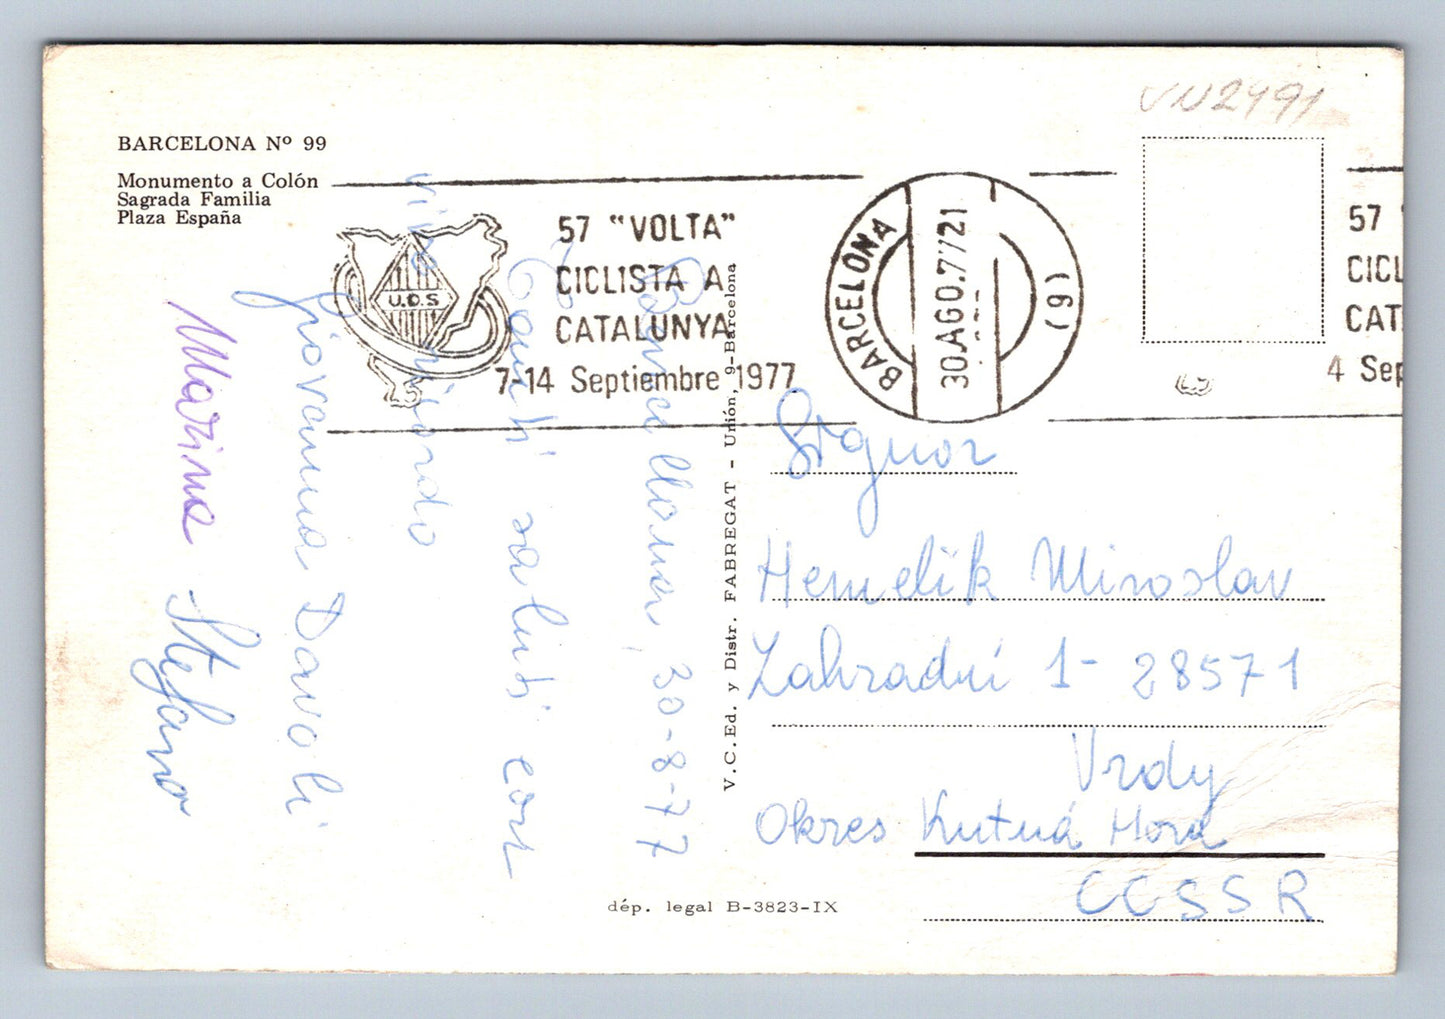 VN2491
BARCELONA Nº 99
Monumento a Colón
Sagrada Familia
Plaza España
57 "VOLTA"
CICLISTA A
CATALUNYA
7-14 Septiembre 1977
U.D.S
BARCELONA
30.AGO.77 21
(9)
57 "
CICL
CAT
4 Sep
30-8-77
saluti con
vivo ricordo
Giovanna Davoli
Marina Stefano
V.C.Ed. y Distr. FABREGAT - Unión, 9-Barcelona
Signor
Hemelík Miroslav
Zahradní 1- 28571
Vrdy
Okres Kutná Hora
CCSSR
dép. legal B-3823-IX